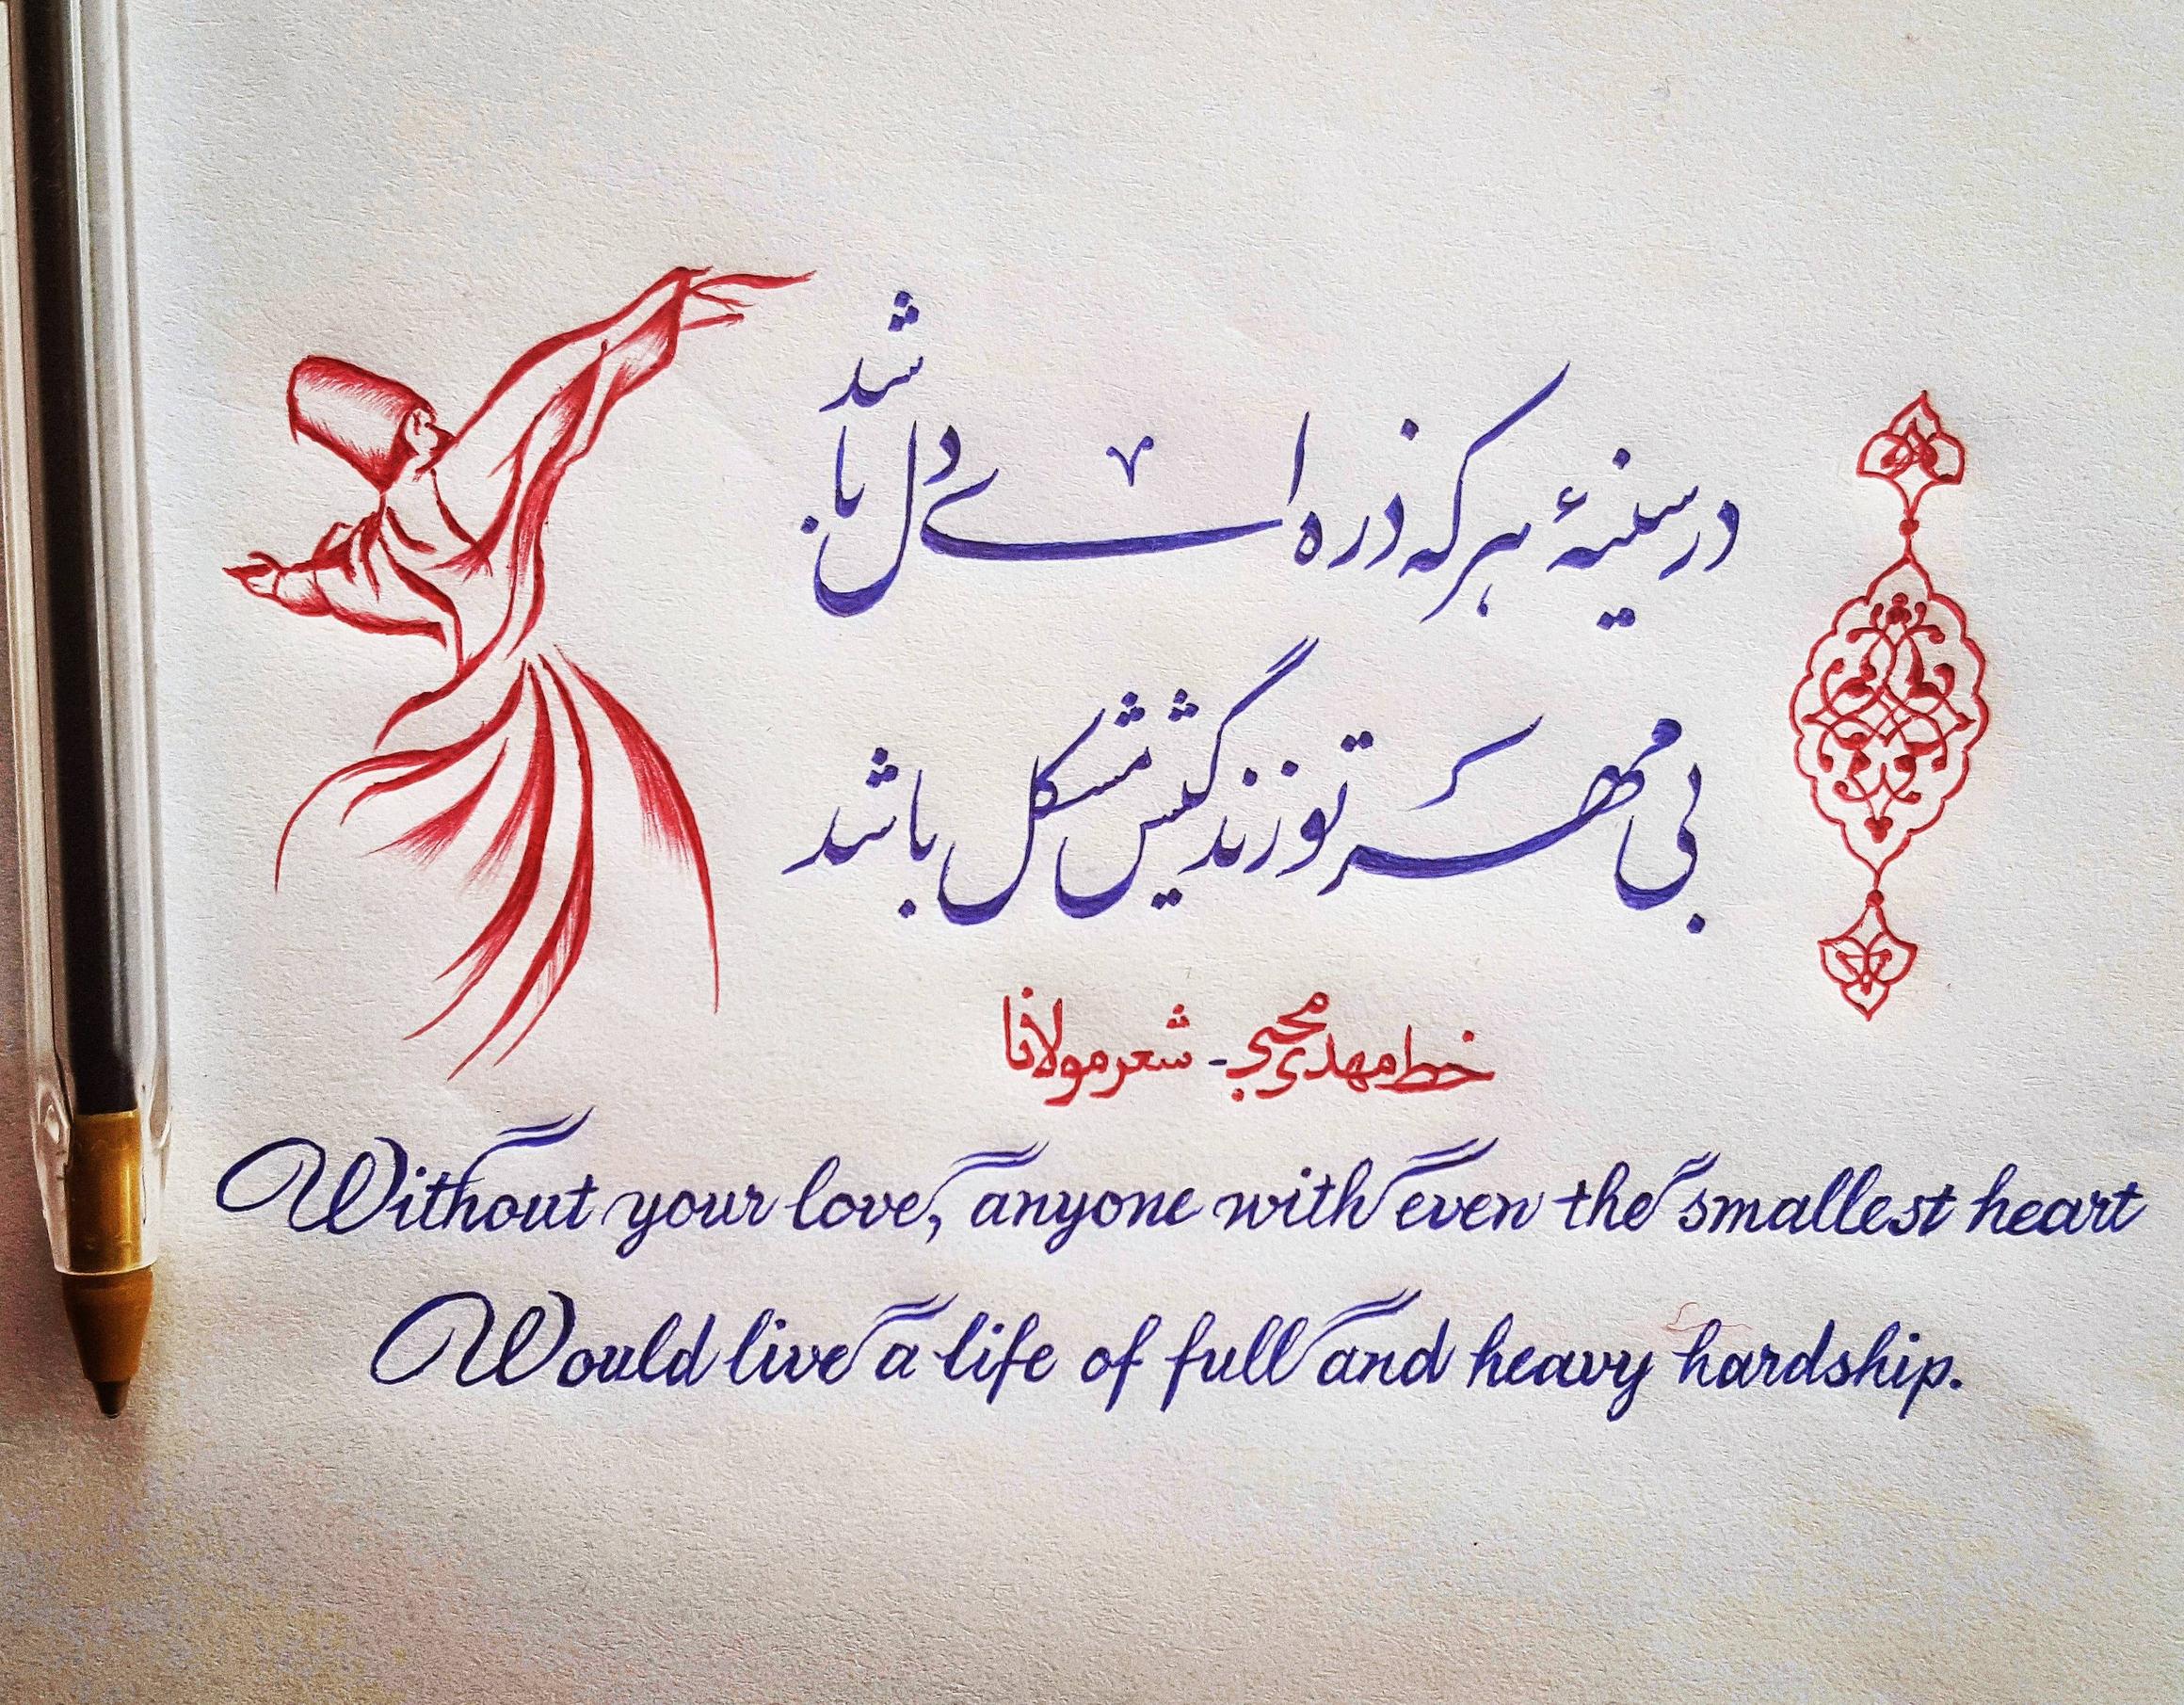 در سینهٔ هر که ذره ای دل باشد
بی مهر تو زندگیش مشکل باشد
خط مهدی محبی - شعر مولانا
Without your love, anyone with even the smallest heart
Would live a life of full and heavy hardship.